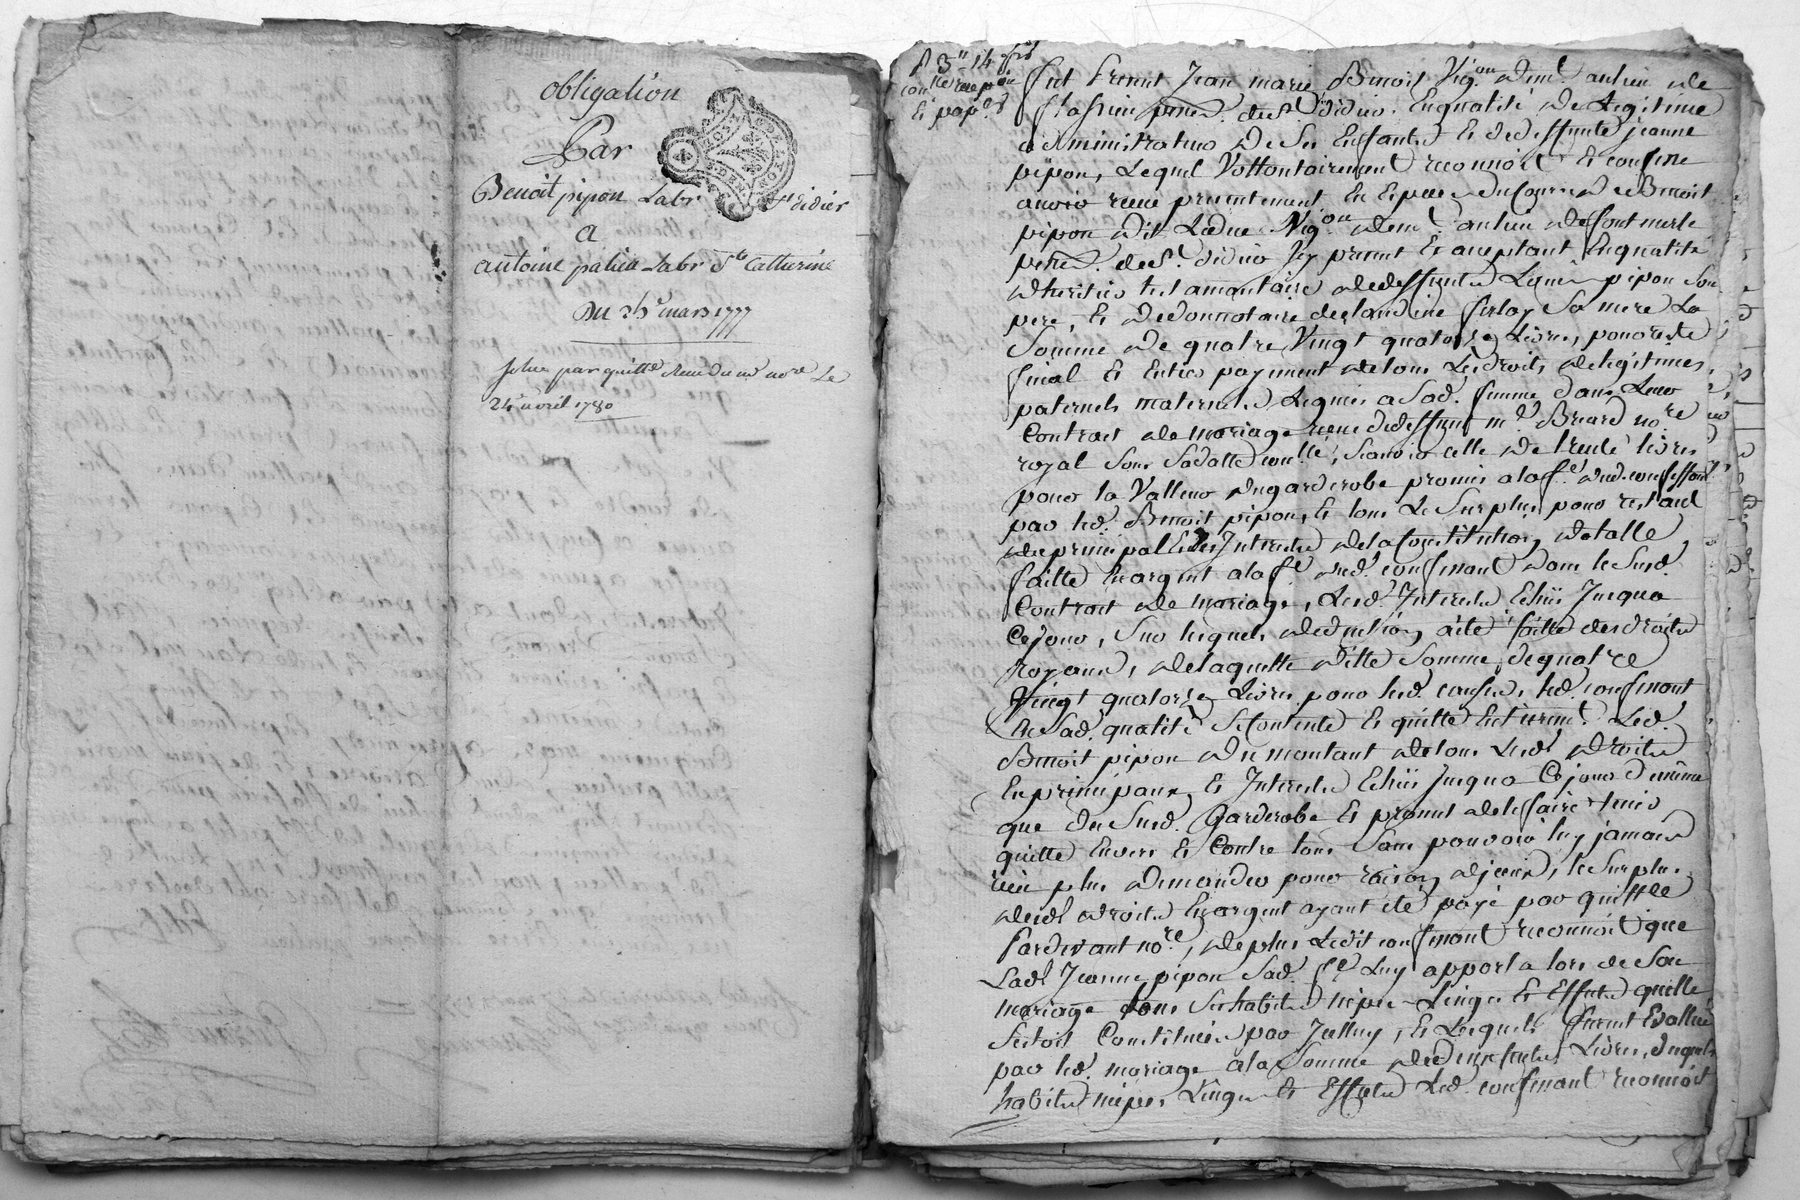 obligation
Par
Benoit pipon Labr St didier
a
antoine palieu Labr Ste Catherine
Du 25e mars 1777
par quitte du me nore Le
24 avril 1780
fut present Jean marie Benoit Vigon demt au lieu de
st didier Enqualité de Legitime
administrateur De Ses Enfants Et de deffunte jeanne
pipon, Lequel Vollontairement reconnoit Et confesse
avoir receu presentement En Especes du Cours de Benoit
pipon dit Vigon demt au lieu de font merle
de St didier Icy present Et acceptant Enqualité
dheritier testamentaire de deffunt pipon Son
pere, Et de donnataire de Sa mere La
Somme de quatre Vingt quatorze Livres, pour reste
final Et Entier payment de tous Les droits de legitimes
paternels maternels Leguéés a Sad. femme dans Leur
Contract de mariage receu de deffunt me Briard nore
royal Sous Sa datte Sçavoir celle de trente livres
pour la Valleur du garderobe promis a la fe dud. confessant
par led. Benoit pipon, Et tous Le Surplus pour restant
du principal Et des Interests de la Constitution dotalle
faitte En argent a la fe dud. confessant dans le Susd.
Contract de mariage, Lesd. Interests Echûs Jusqua
Ce jour, Sur lesquels deduction a été faitte des droits
royaux, de laquelle ditte Somme de quatre
Vingt quatorze Livres pour led. causes, led. confessant
En Sad. qualité Se Contente Et quitte Entierement Led.
Benoit pipon du montant de tous Lesd. droits
En principaux Et Interests Echûs Jusqua Ce jour de même
que du Susd. Garderobe Et promet de le faire tenir
quitte Envers Et Contre tous Sans pouvoir luy jamais
rien plus demander pour raison djceux, le Surplus
desd. droits En argent ayant été payé par quittce
pardevant nore, de plus Ledit confessant reconnoit que
Lad. Jeanne pipon Sad. fe Luy apporta lors de Son
mariage tous Ses habits nipes Linges Et Effets quelle
Setoit Constitués par Jcelluy, Et Lesquels furent Evallués
par led. mariage a la Somme de Livres, desquels
habits nipes, Linges Et Effets Led. confessant reconnoit